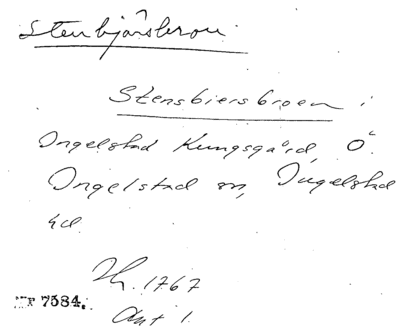 Stenbjörsbron
Stensbiersbroen i
Ingelstad Kungsgård, Ö.
Ingelstad sn, Ingelstad
hd.
1767
Akt 1.
7584.